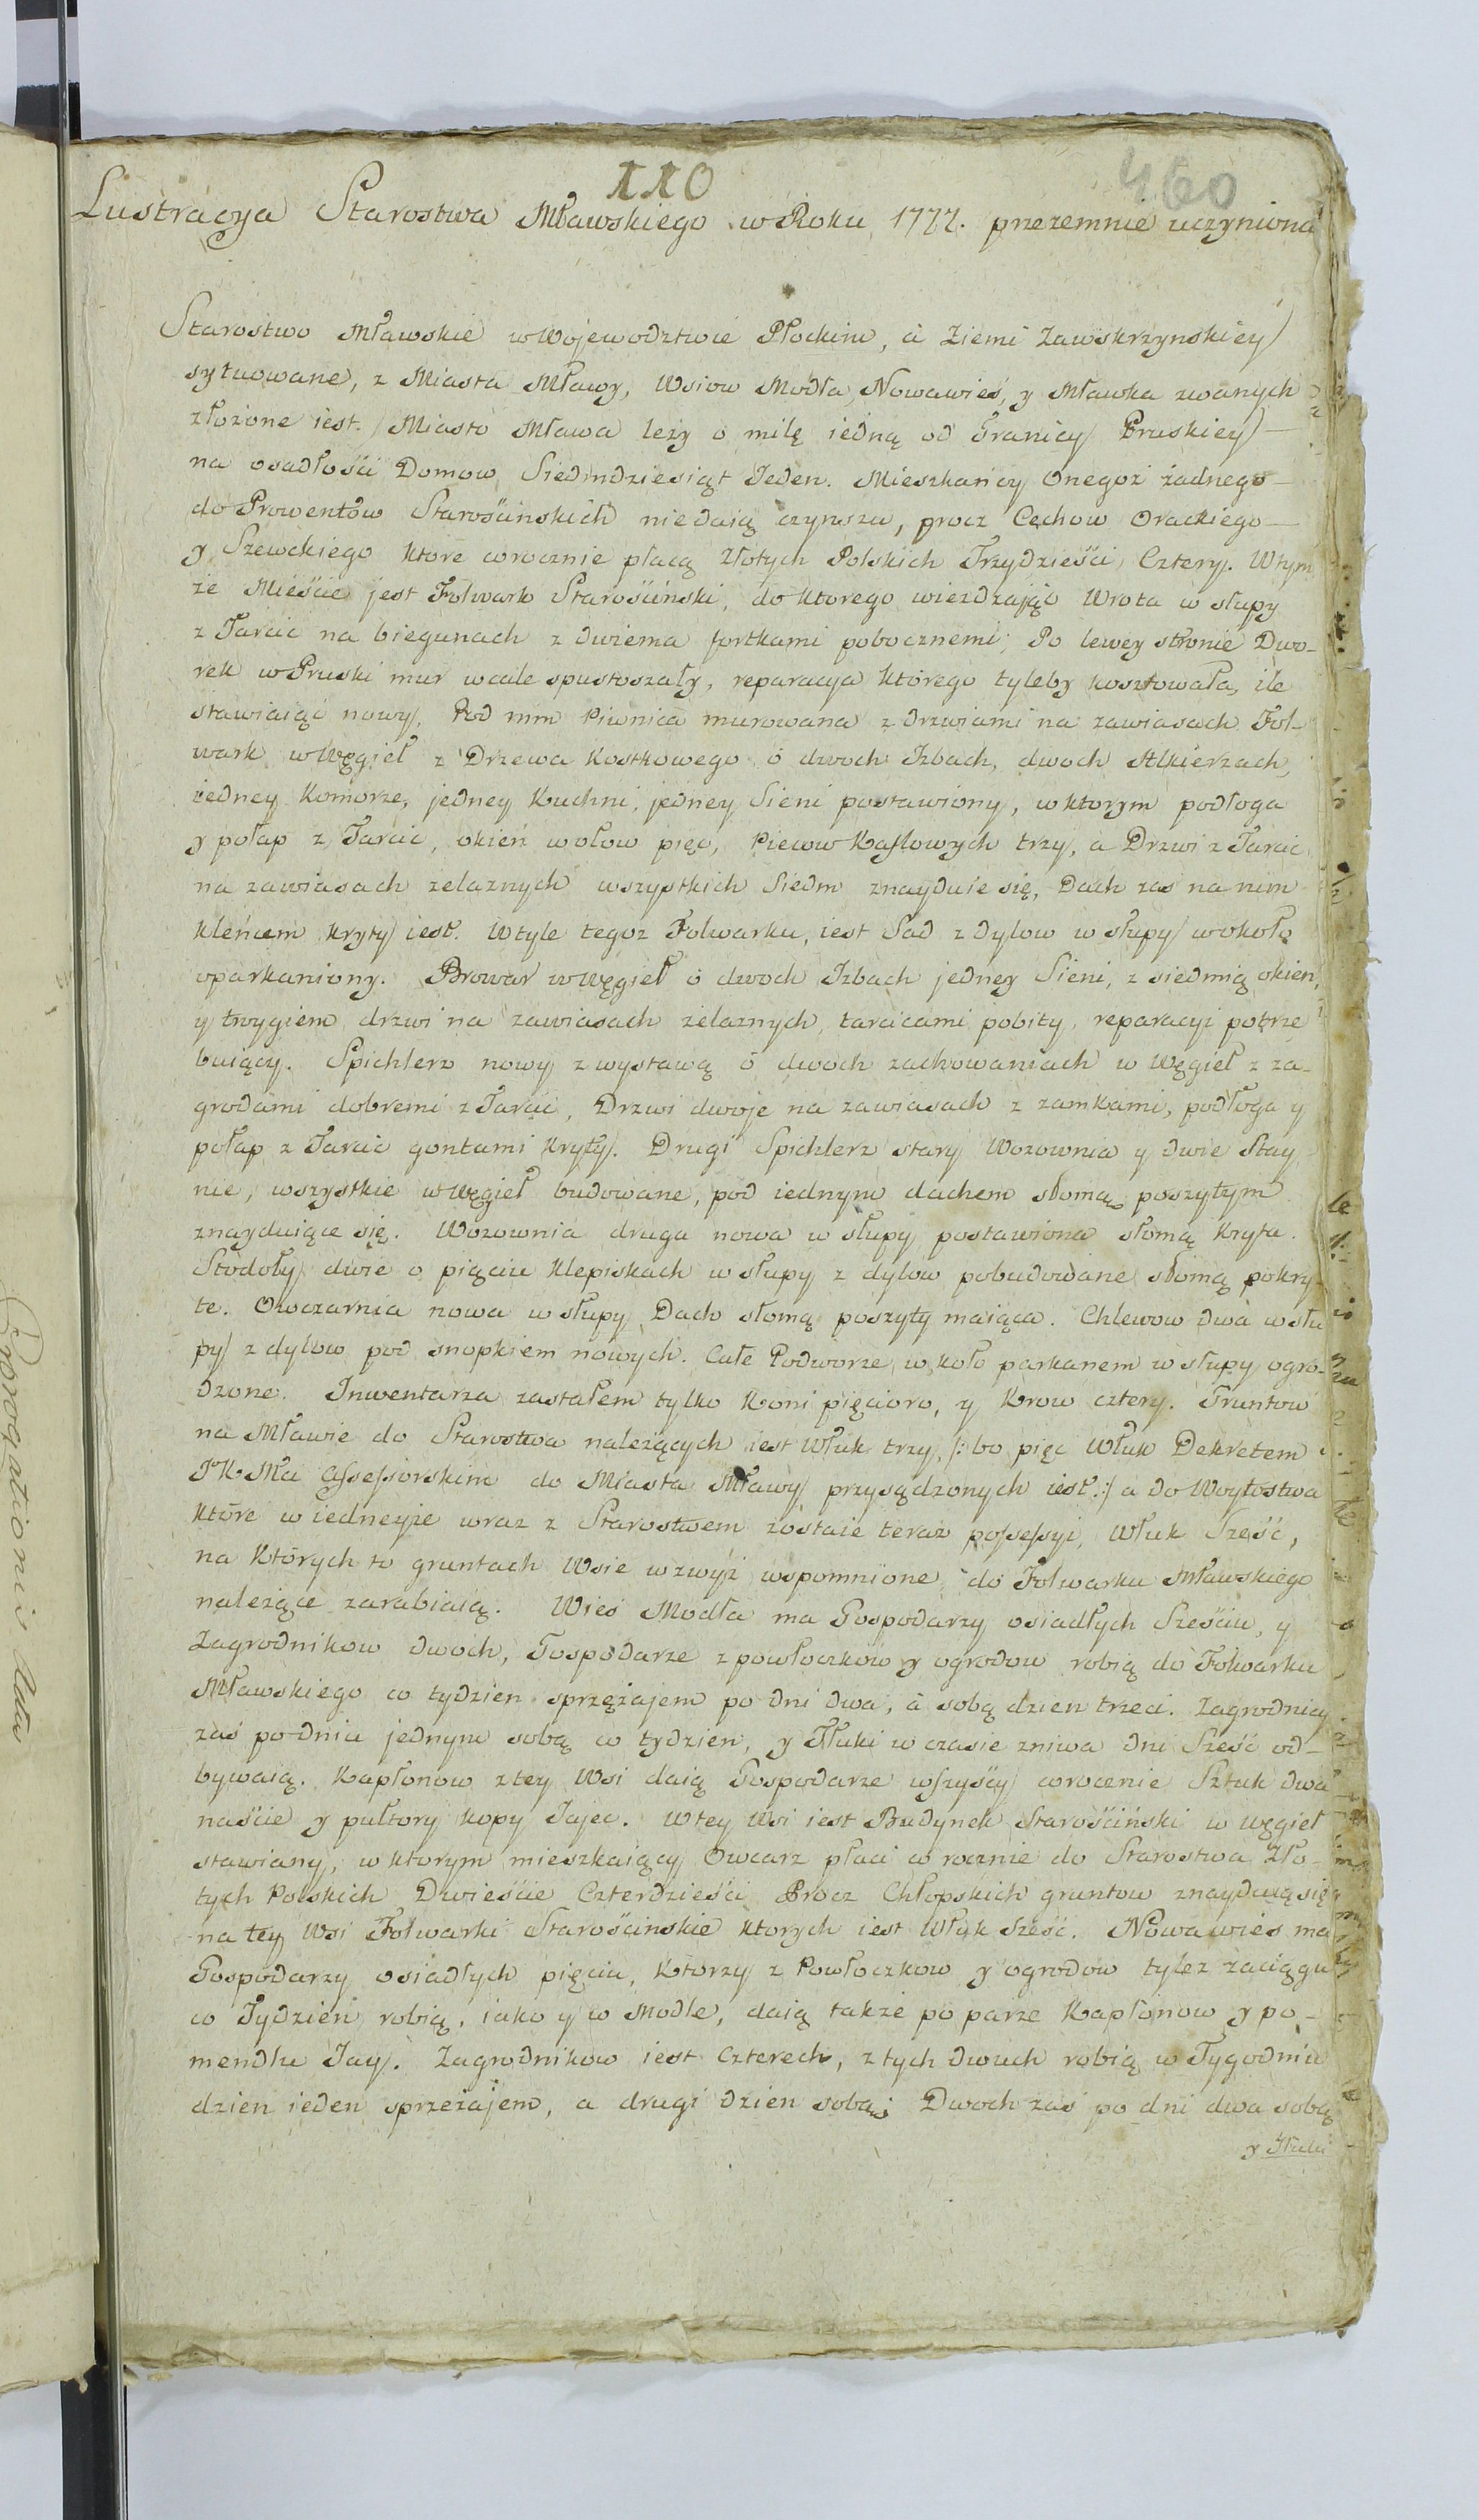 110
460
Lustracya Starostwa Mławskiego w Roku 1777. przezemnie uczyniona
Starostwo Mławskie w Wojewodztwie Płockim, a Ziemi Zawskrzynskiey
sytuowane, z Miasta Mławy, Wsiow Modła, Nowawieś, y Mławka zwanych
złożone iest. Miasto Mława leży o milę iedną od Granicy Pruskiey
na osadłości Domow Siedmdziesiąt Jeden. Mieszkańcy Onegoż żadnego
do Prowentów Starościnskich niedaią czynszu, procz Cechow Orackiego
y Szewckiego które corocznie płacą Złotych Polskich Trzydzieści Cztery. Wtym
że Mieście jest Folwark Starościński, do ktorego wieżdżając Wrota w słupy
z Tarcic na biegunach z dwiema fortkami pobocznemi; Po lewey stronie Dwo-
rek w Pruski mur wcale spustoszały, reparacya którego tyleby kosztowała, ile
stawiaiąc nowy, Pod nim Piwnica murowana z drzwiami na zawiasach Fol-
wark w Węgieł z Drzewa Kostkowego o dwoch Izbach, dwoch Alkierzach,
iedney Komorze, jedney Kuchni, jedney Sieni postawiony, w ktorym podłoga
y połap z Tarcic, okień w ołow pięć, Piecow Kaflowych trzy, a Drzwi z Tarcic
na zawiasach żelaznych wszystkich Siedm znayduie się, Dach zas na nim
kleńcem kryty iest. W tyle tegoż Folwarku, iest Sad z dylow w słupy wokoło
oparkaniony. Browar w Węgieł o dwoch Izbach jedney Sieni, z siedmią okien,
y trzygiem drzwi na zawiasach żelaznych, tarcicami pobity, reparacyi potrze
buiący. Spichlerz nowy z wystawą o dwoch zachowaniach w Węgieł z za-
grodami dobremi z Tarcic, Drzwi dwoje na zawiasach z zamkami, podłoga y
połap z Tarcic gontami kryty. Drugi Spichlerz stary Wozownia y dwie Stay
nie, wszystkie w Węgieł budowane, pod iednym dachem słomą poszytym
znayduiące się. Wozownia druga nowa w słupy postawiona słomą kryta.
Stodoły dwie o pięciu klepiskach w słupy z dylow pobudowane słomą pokry-
te. Owczarnia nowa w słupy Dach słomą poszyty maiąca. Chlewow dwa w słu
py z dylow pod snopkiem nowych. Całe Podworze w koło parkanem w słupy ogro-
dzone. Inwentarza zastałem tylko Koni pięcioro, y Krow cztery. Gruntow
na Mławie do Starostwa należących iest Włuk trzy, /: bo pięć Włuk Dekretem
JK Mci Assessorskim do Miasta Mławy przysądzonych iest :/ a do Woytostwa
które w iedneyże wraz z Starostwem zostaie teraz possessyi, Włuk Sześć,
na których to gruntach Wsie w zwyż wspomnione do Folwarku Mławskiego
należące zarabiaią. Wieś Modła ma Gospodarzy osiadłych Sześciu, y
Zagrodnikow dwoch, Gospodarze z powłoczków y ogrodow robią do Folwarku
Mławskiego co tydzien sprzężajem po dni dwa, a sobą dzien trzeci. Zagrodnicy
zaś po dniu jednym sobą co tydzien, y Tłuki w czasie zniwa dni Sześć od-
bywaią. Kapłonow z tey Wsi daią Gospodarze wszyscy corocznie Sztuk dwa
naście y pułtory kopy Jajec. W tey Wsi iest Budynek Starościński w węgieł
stawiany, w ktorym mieszkaiący Owczarz płaci corocznie do Starostwa Zło-
tych Polskich Dwieście Czterdzieści Procz Chłopskich gruntow znayduią się
na tey Wsi Folwarki Starościnskie ktorych iest Włuk Sześć. Nowawieś ma
Gospodarzy osiadłych pięciu, którzy z Powłoczkow y ogrodow tyleż zaciągu
co Tydzień robią, iako y w Modle, daią także po parze Kapłonow y po-
mendlu Jay. Zagrodnikow iest Czterech, z tych dwuch robią w Tygodniu
dzien ieden sprzeżajem, a drugi dzien sobą; Dwoch zaś po dni dwa sobą
y Tłuki